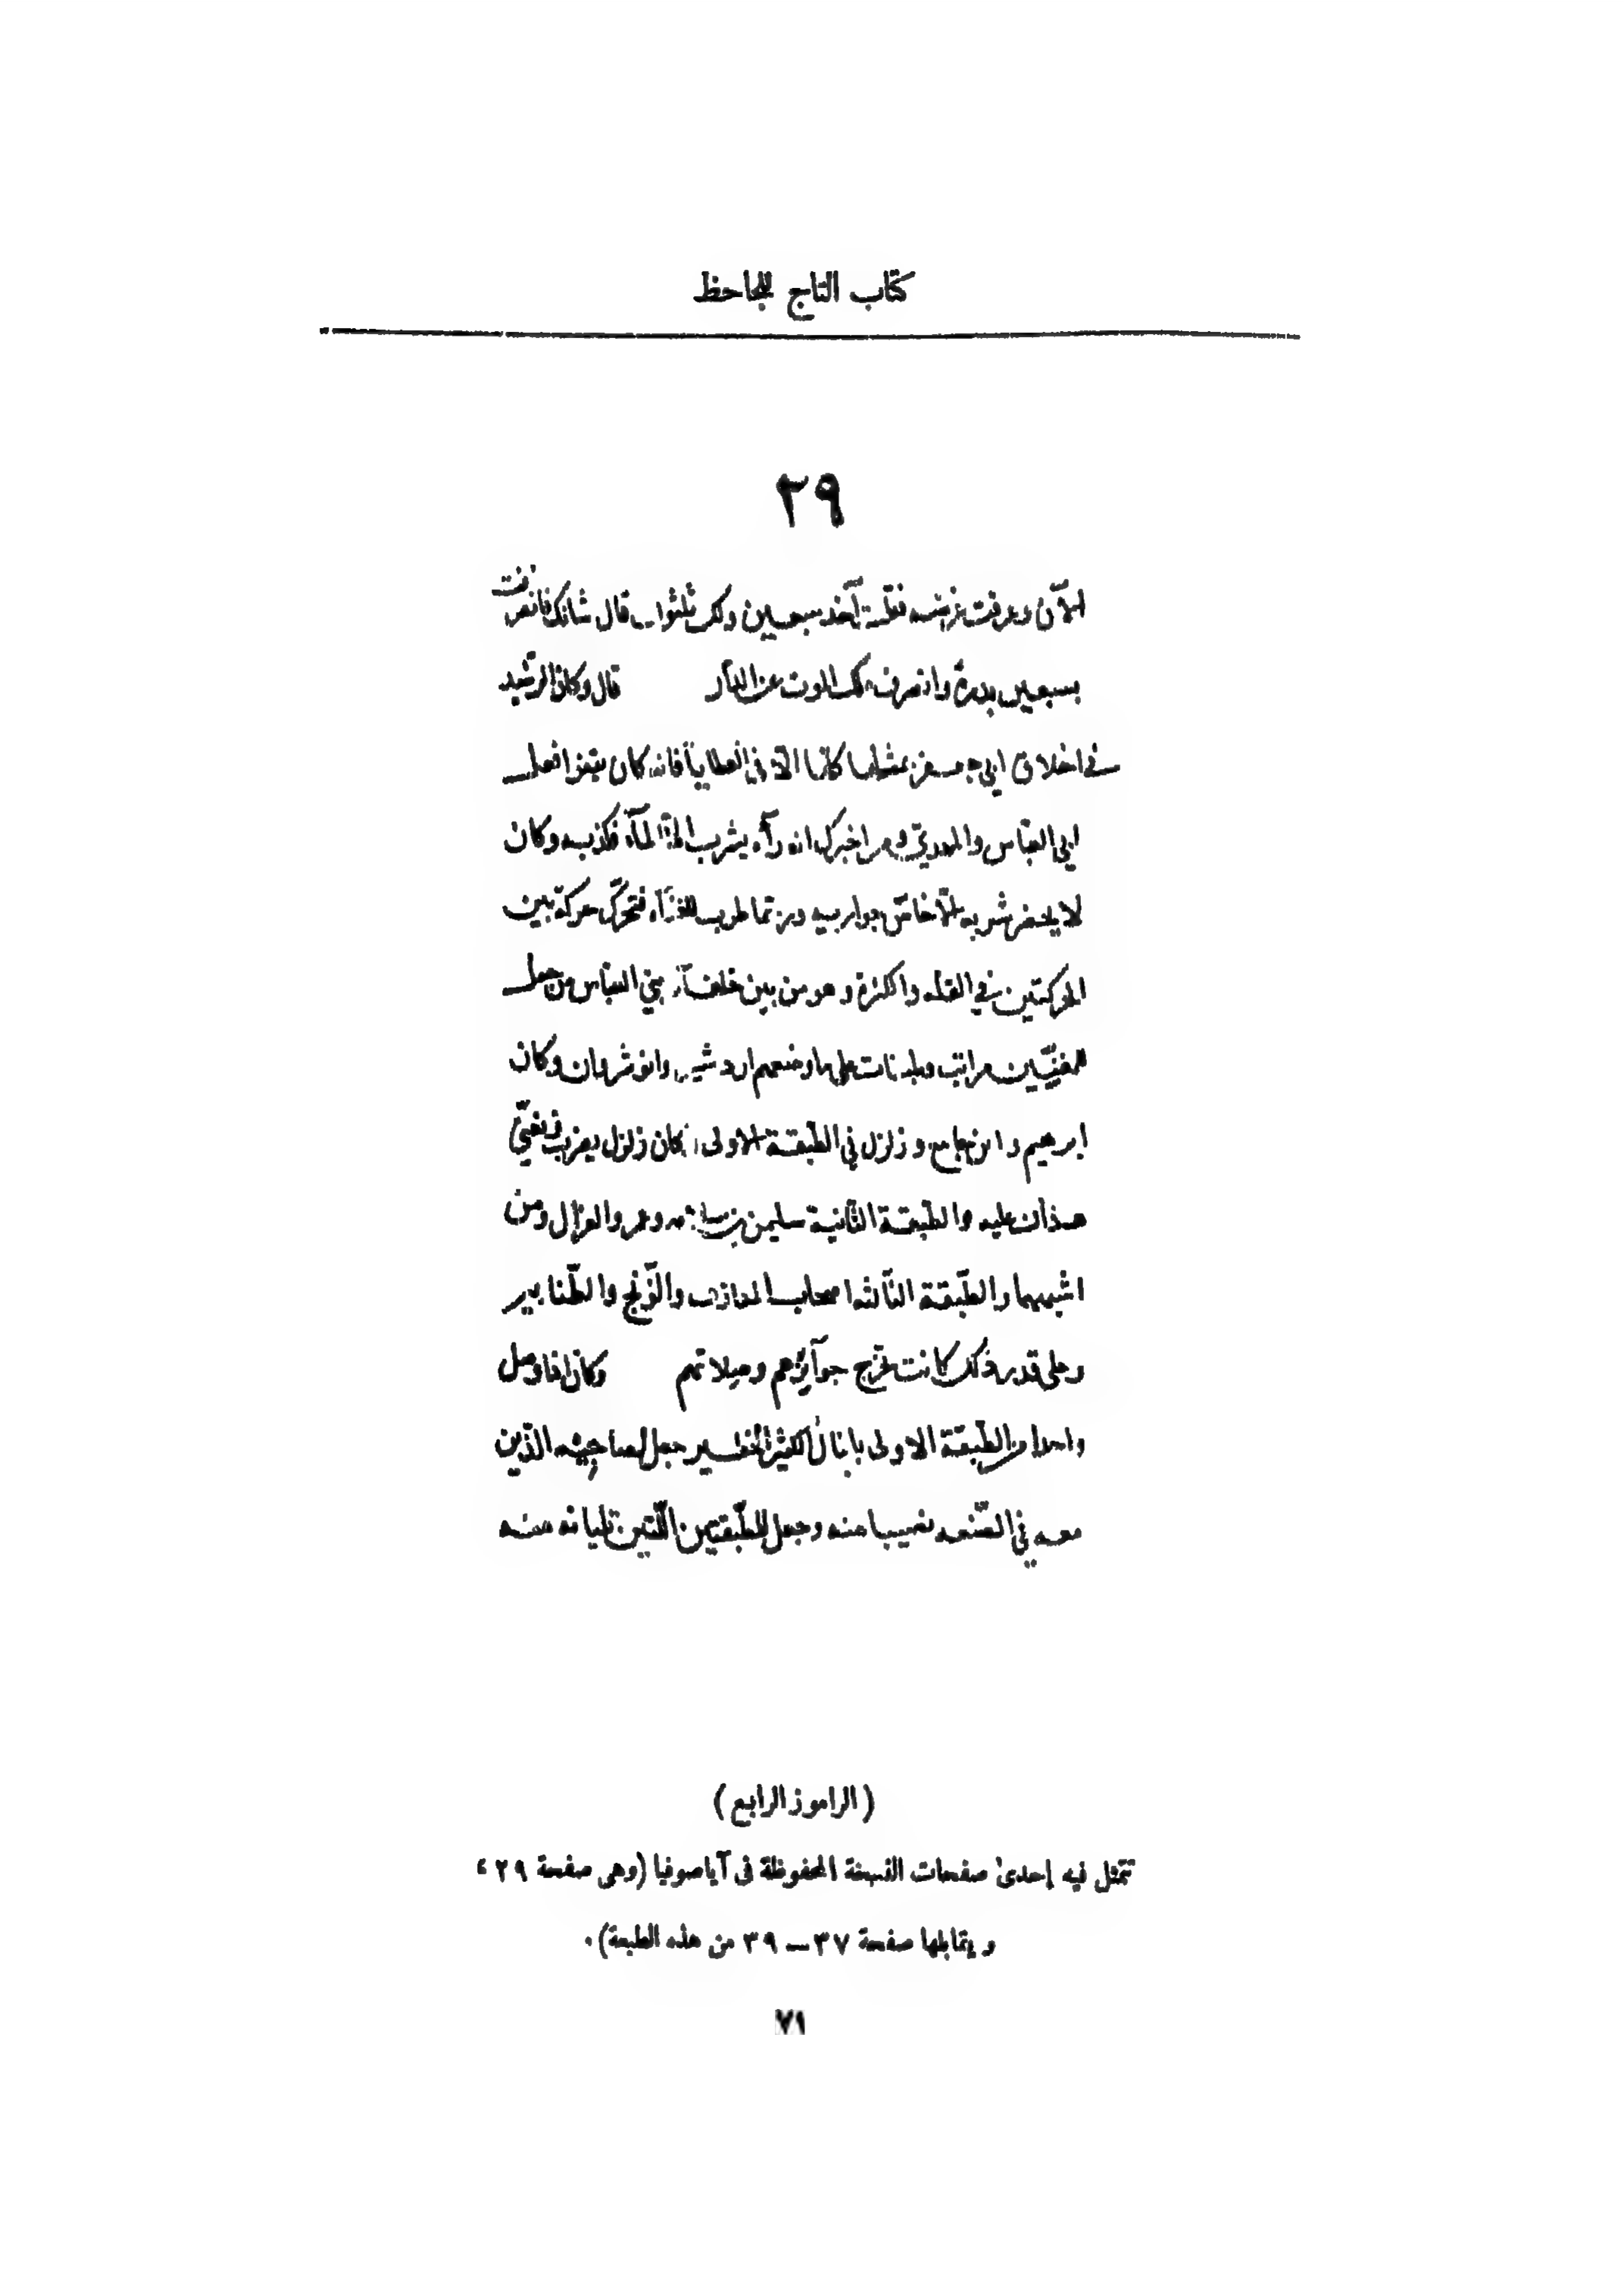 كتاب التاج للجاحظ
٢٩
الآن وعرفت غرضه فقلت آخذ سبعين ولك ثلثون قال شانك فانصرفت
بسبعين بدرة وانصرف ملك الموت عن الدار قال وكان الرشيد
في اخلاق ابي جعفر يمتثلها كلها الا في العطايا فانه كان يقفوا فعل
ابي العباس والمهدي ومن اخبرك انه رآه يشرب الا المآء فكذبه وكان
لا يحضر شربه الا خاص جواريه وربما طرب للغناء فتحرك حركة بين
الحركتين في القله والكثرة وهو من بين خلفآء بني العباس من جعل
للمغنيين مراتب وطبقات على ما وضعهم اردشير وانوشروان وكان
ابرهيم وابن جامع وزلزل في الطبقة الاولى كان زلزل يضرب ويغني
هذان عليه والطبقة الثانية سليمن بن سلام وعمرو الغزال ومن
اشبههما والطبقة الثالثه اصحاب المعازف والونج والطنابير
وعلى قدر ذلك كانت تخرج جوآئزهم وصلاتهم وكان اذا وصل
واحدا من الطبقة الاولى بالمال الكثير الخطير جعل لصاحبيه الذين
معه في الصنعه نصيبا منه وجعل للطبقتين اللتين تليانه منه
(الراموز الرابع)
تتمثل فيه إحدى صفحات النسخة المحفوظة فى آياصوفيا (وهى صفحة ٢٩ ،
ويقابلها صفحة ٣٧ — ٣٩ من هذه الطبعة).
٧١